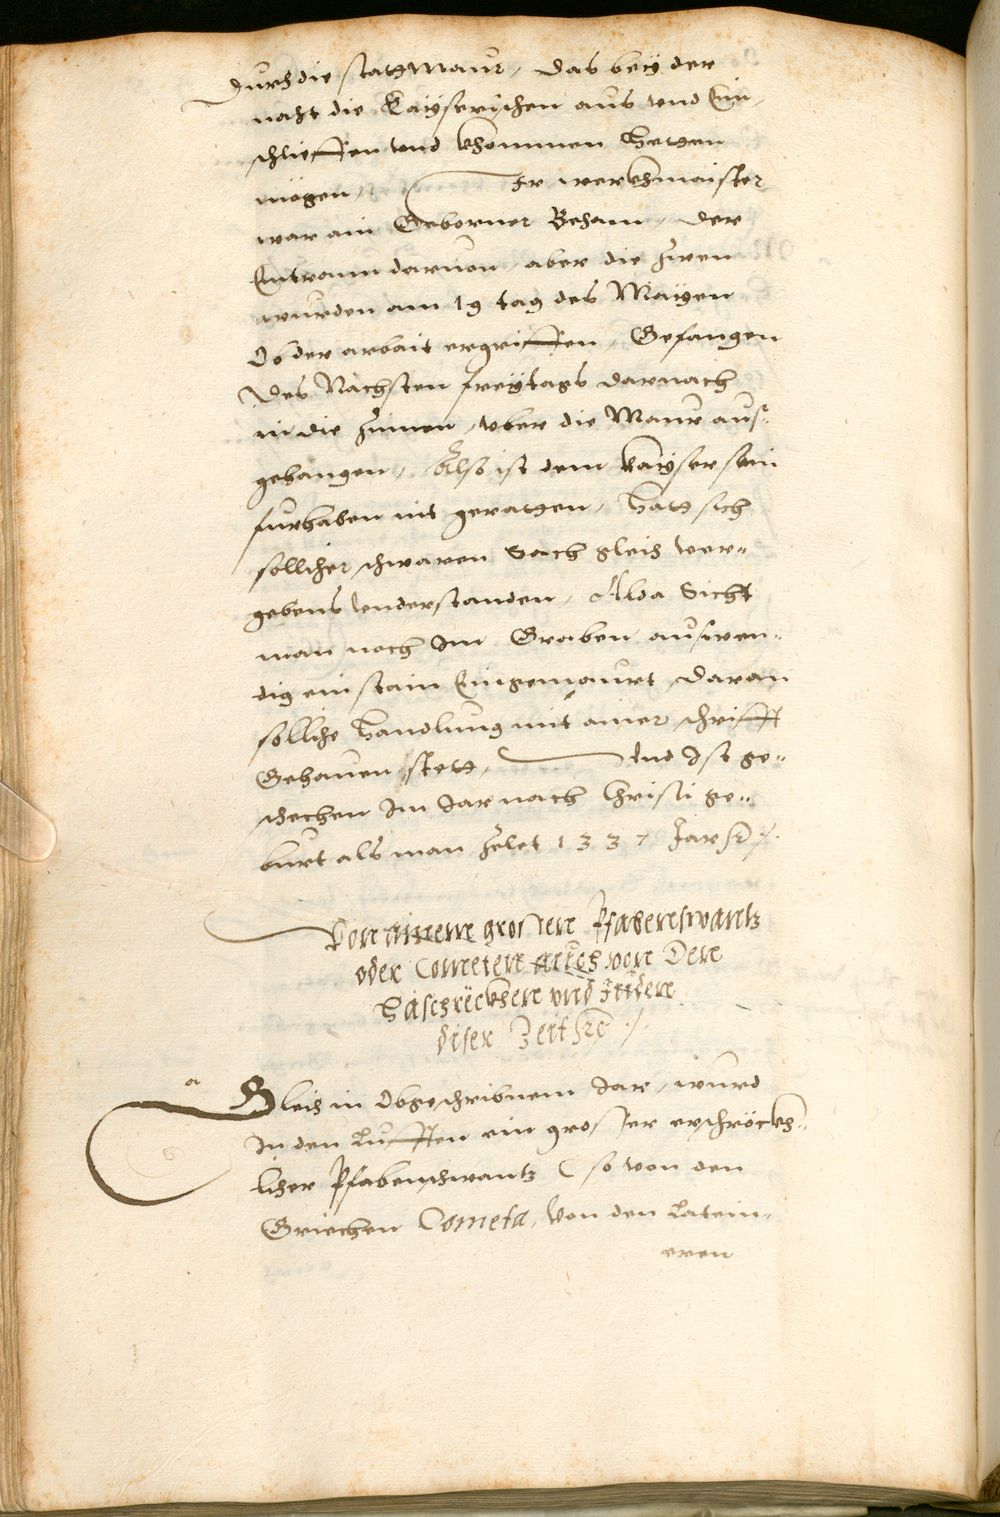 durch die stattmaur, das bey der
nacht die Kayserischen aus vnd Ein,
schlieffen vnd khommen hetten
mögen, Ir werckhmaister
war ain Geborner Beham, der
Entrann daruon, aber die zwen
wurden am 19 tag des Mayen
Ob der arbait ergriffen, Gefangen
Des Nachsten freytags darnach
in die Zinnen, vber die Maur aus-
gehangen, Also ist dem kayser sein
furhaben nit geratten, hatt sich
sollicher schwaren Sach gleich ver-
gebens vnderstanden, Alda Sicht
man noch Im Graben auswen-
dig ein stain Eingemaurt, daran
solliche handlung mit ainer schrifft
Gehauen stett, Vnd Ist ge-
schechen Im Jar nach Christi ge-
burt als man zelet 1337 Jar etc ./.
Von ainem grossen Pfabenschwantz
oder Cometen auch von den
Haischrëckhen vnd Juden
diser Zeit etc ./.
a
Gleich in Obgeschribnem Jar, wurd
In den Lufften ein grosser erschröckh-
licher Pfabenschwantz ( so von den
Griechen Cometa, von den Latein-
eren